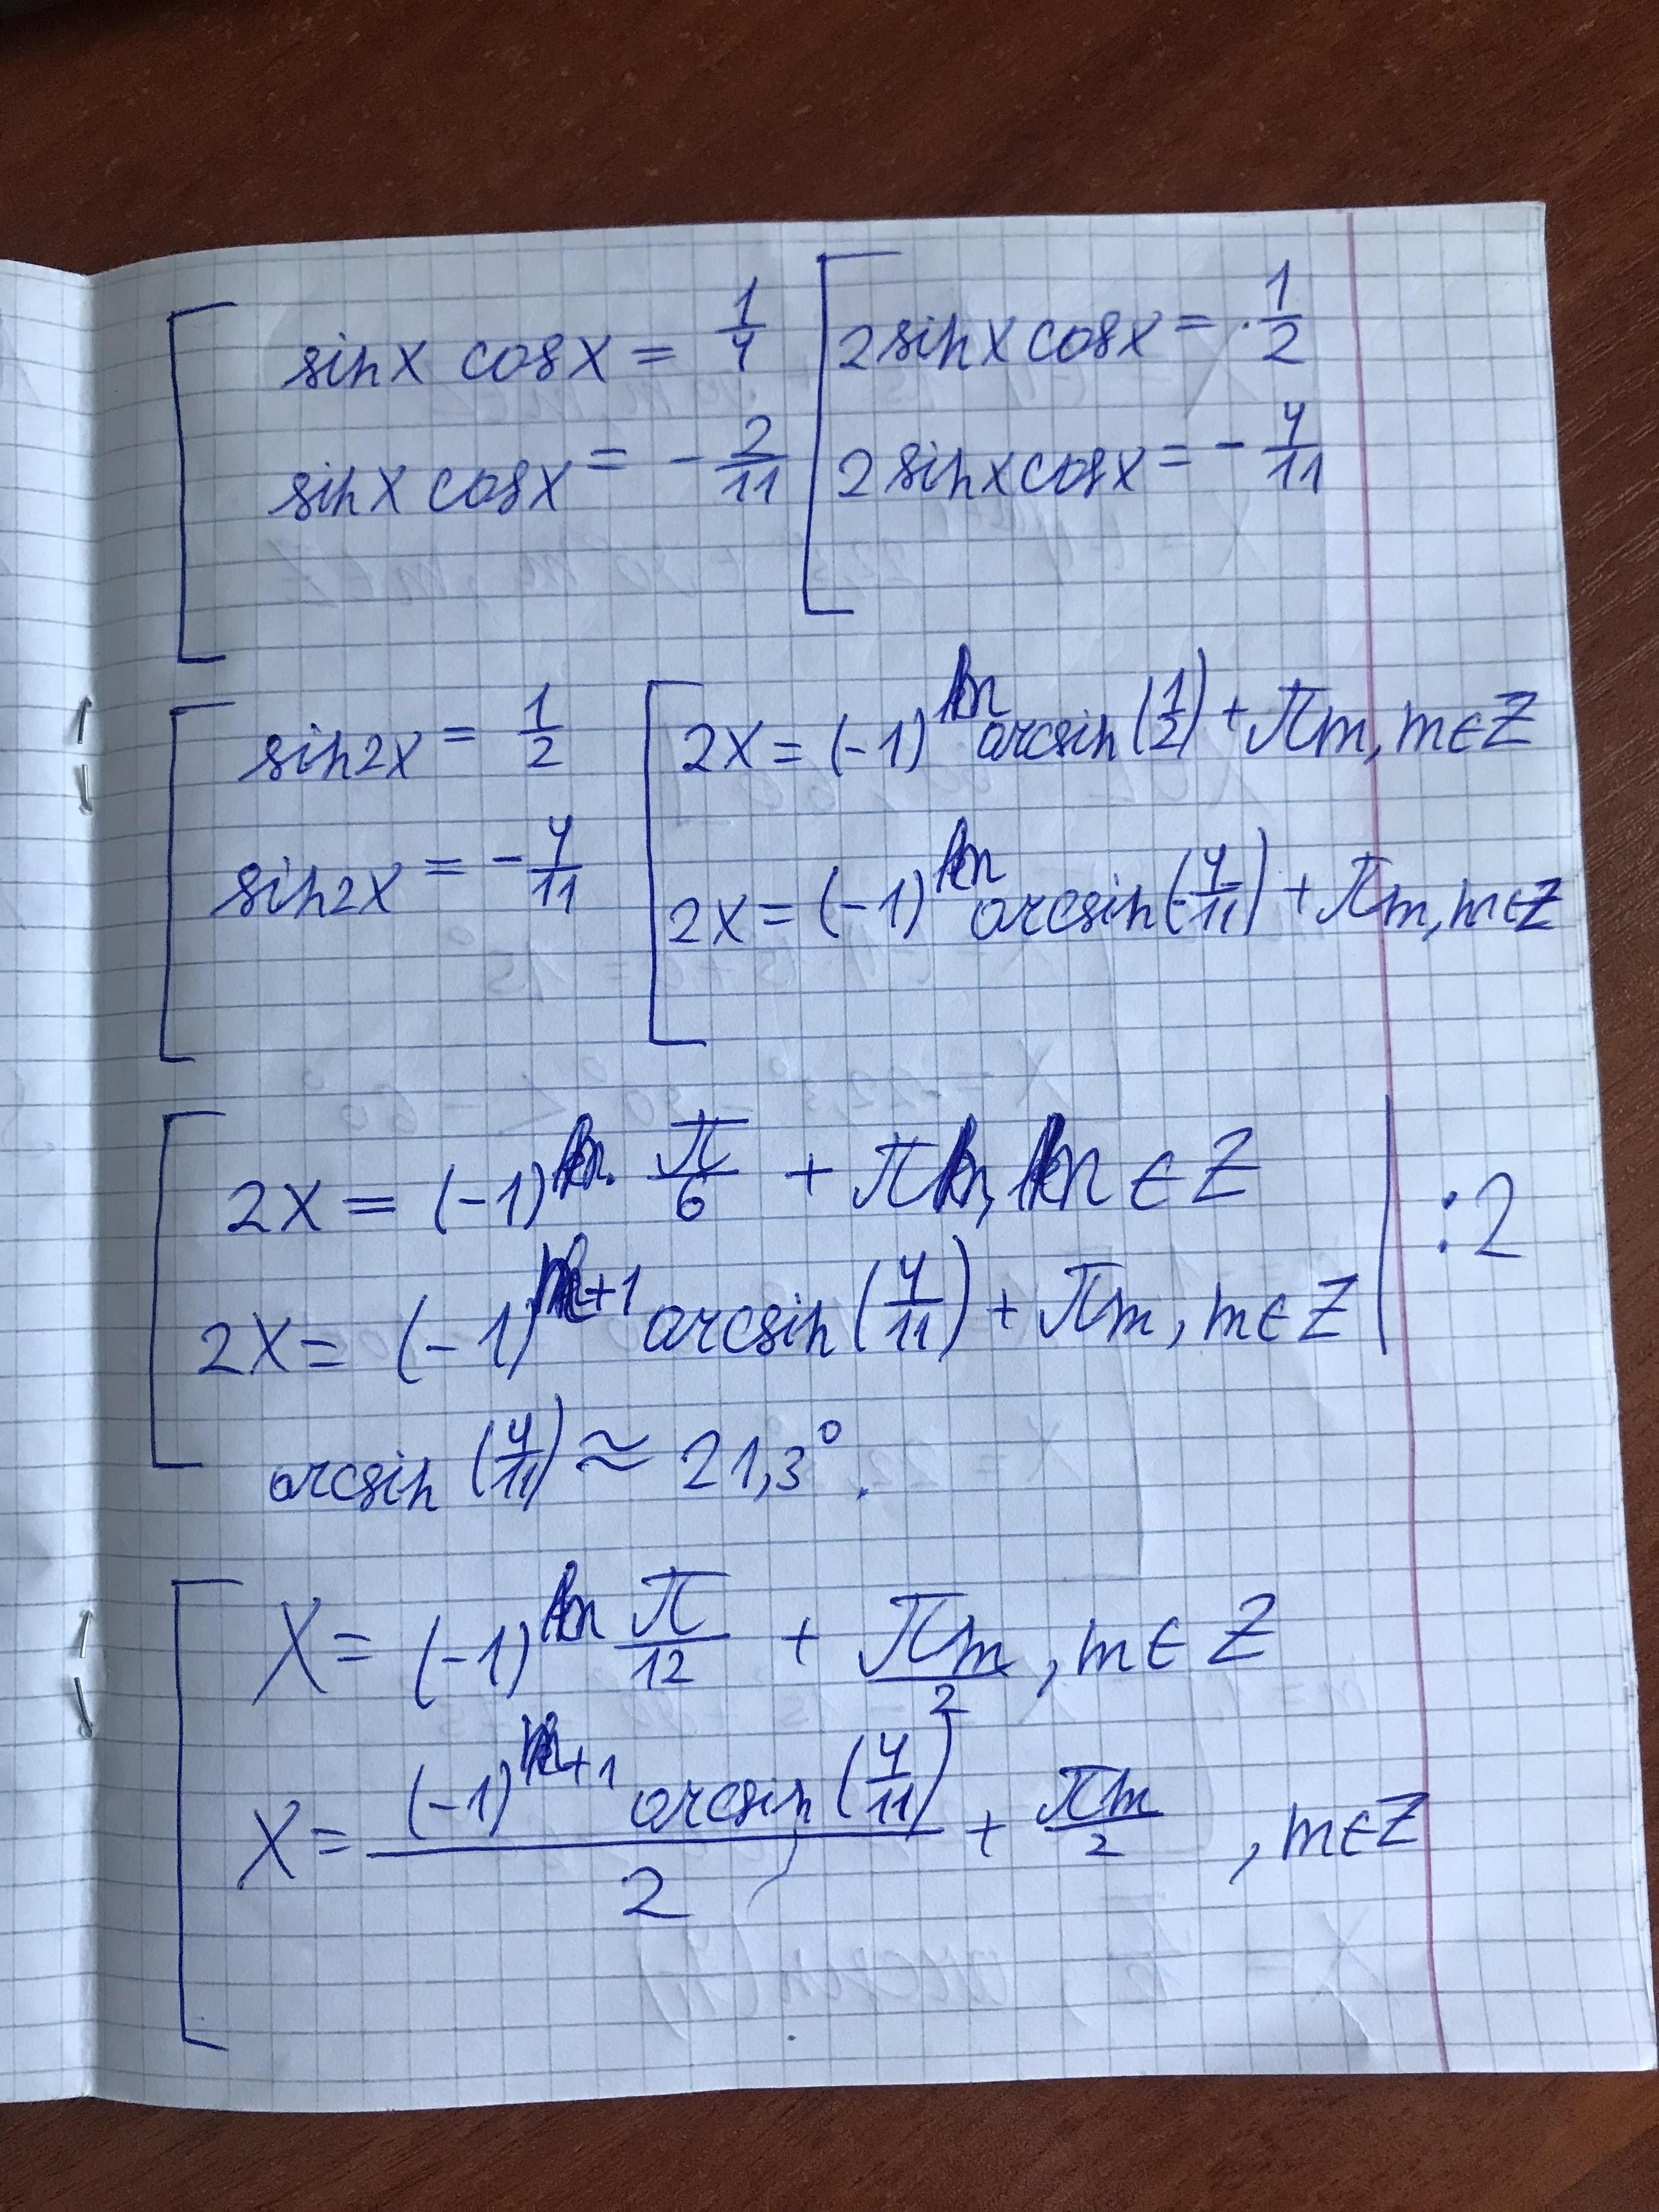 sinx cosx = 1/4
sinx cosx = - 2/11
2sinx cosx = 1/2
2sinx cosx = - 4/11
sin2x = 1/2
sin2x = - 4/11
2x = (-1)^n arcsin(1/2) + πm, m∈Z
2x = (-1)^n arcsin(-4/11) + πm, m∈Z
2x = (-1)^n · π/6 + πn, n ∈ Z
2x = (-1)^m+1 arcsin(4/11) + πm, m∈Z | :2
arcsin(4/11) ≈ 21,3°.
X = (-1)^n π/12 + πm/2, m∈Z
X = (-1)^m+1 arcsin(4/11)/2 + πm/2, m∈Z